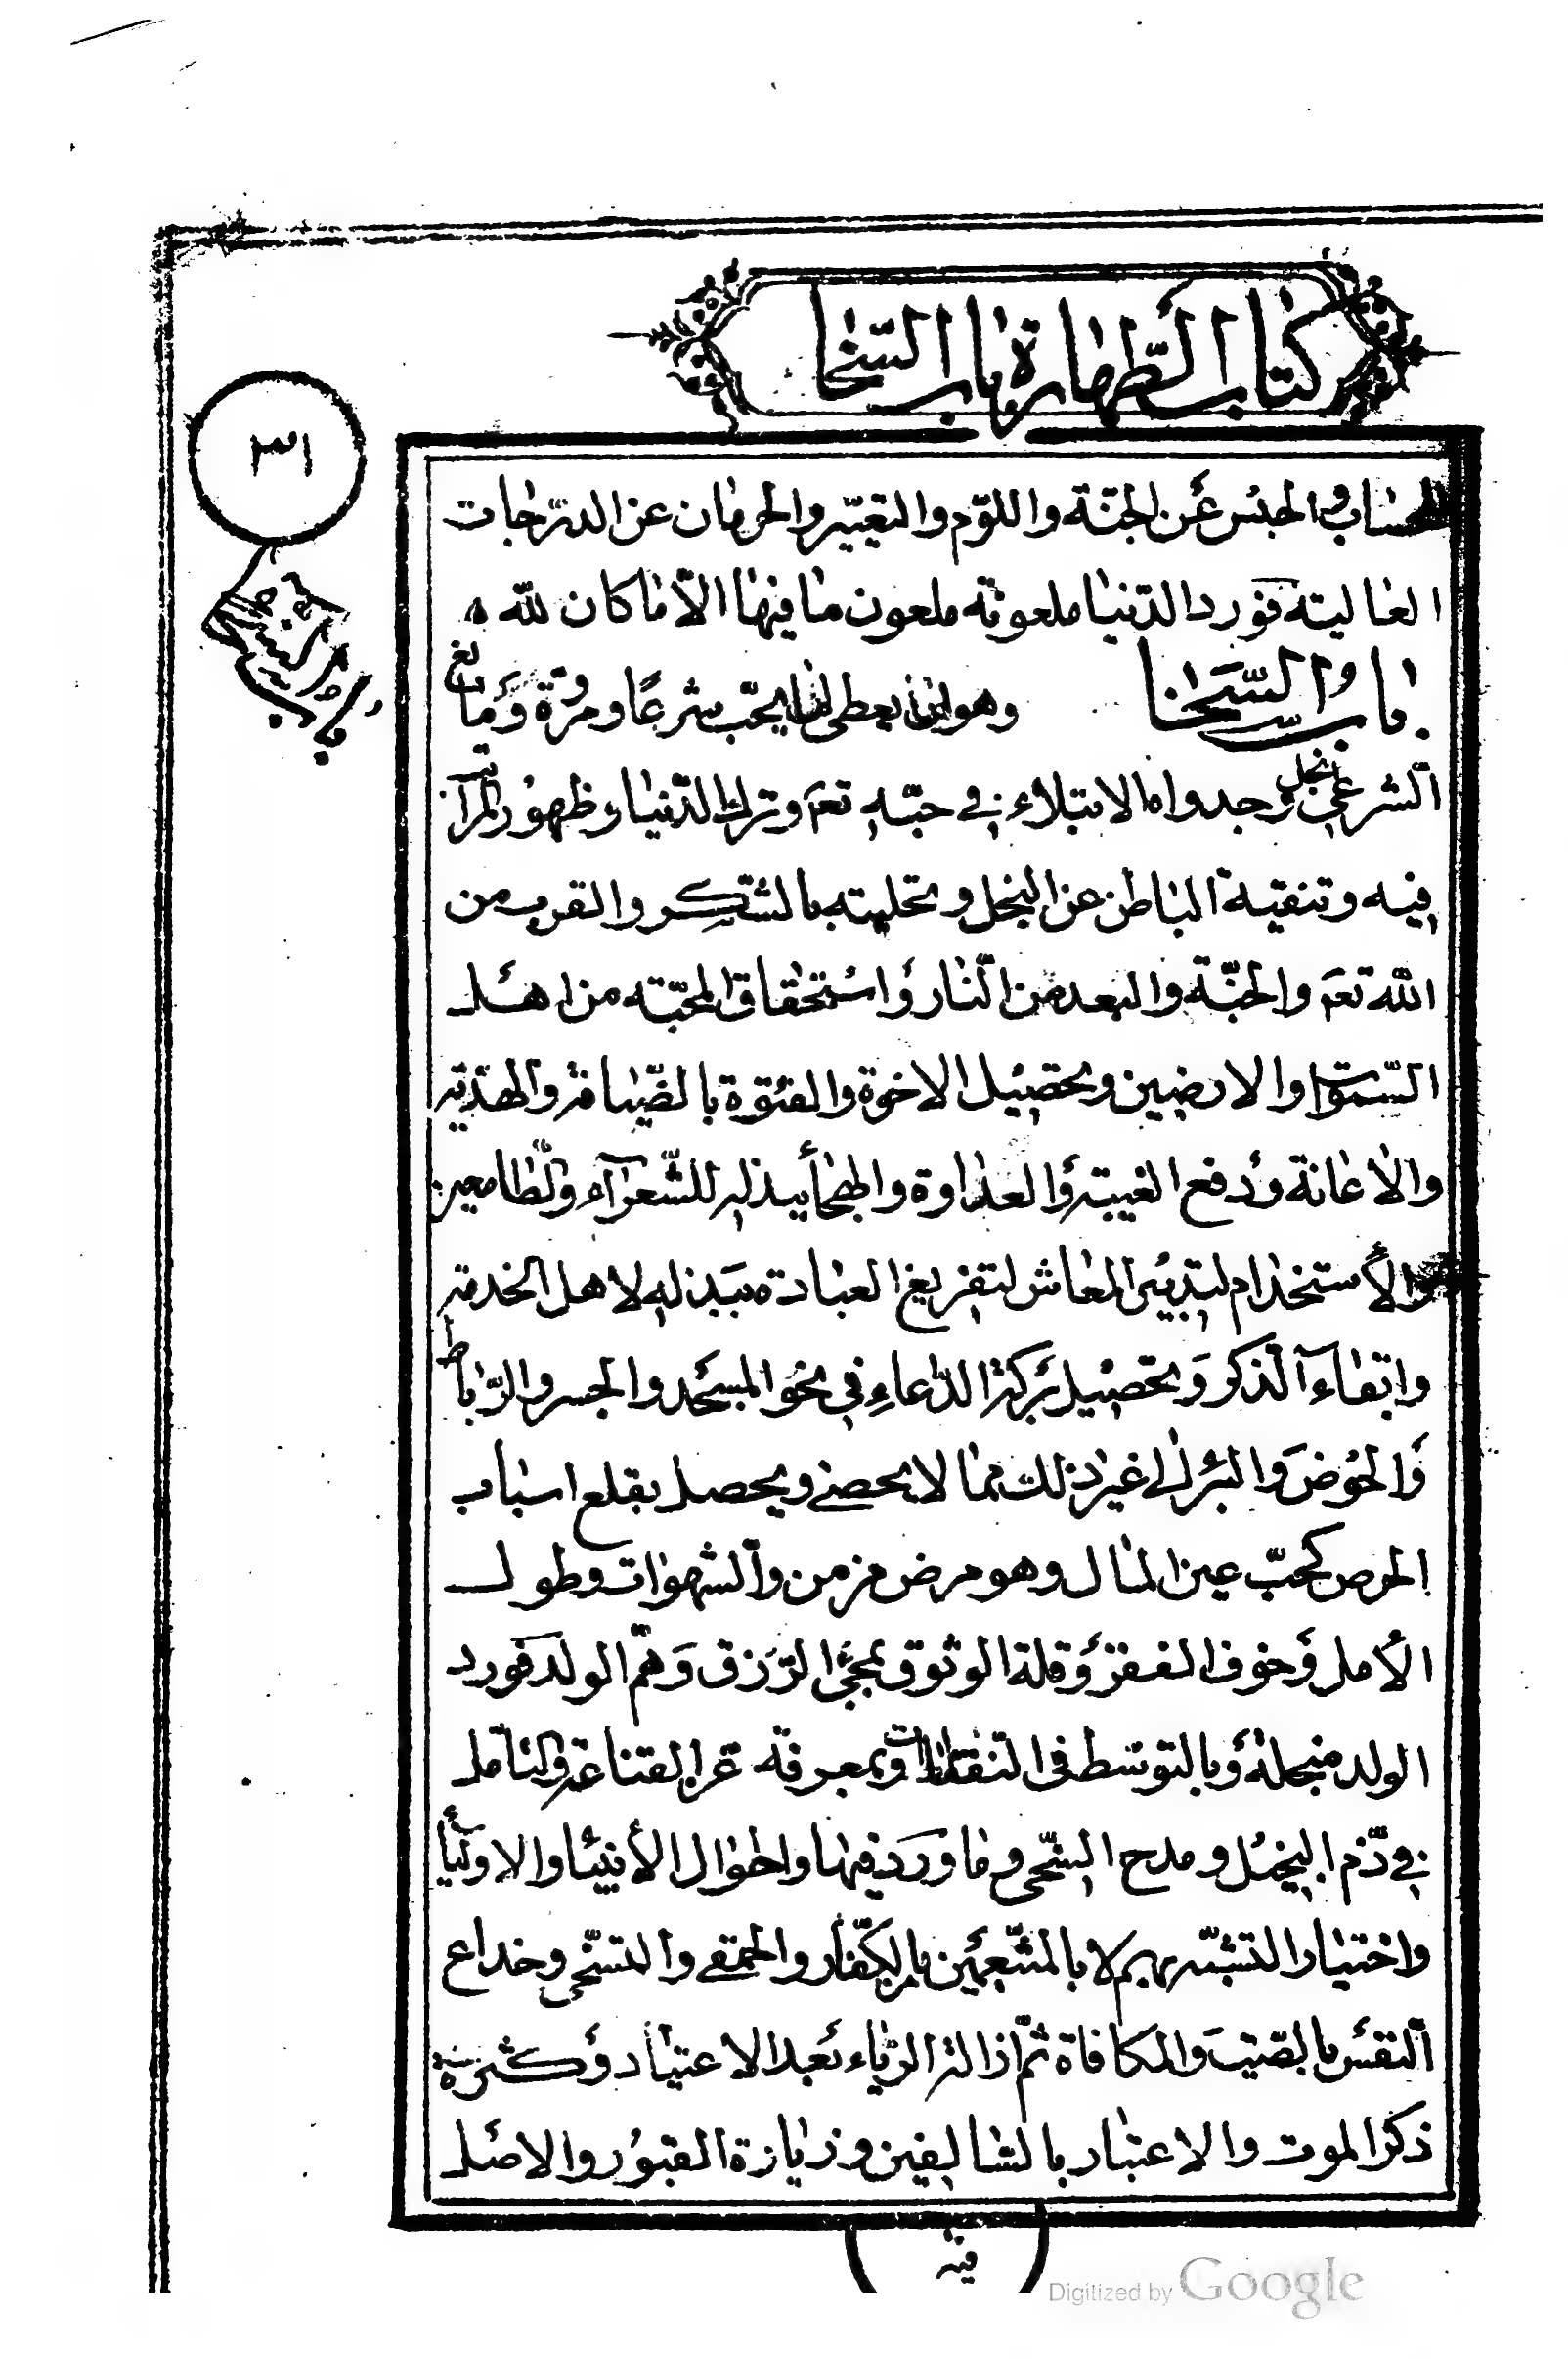 كتاب الطهارة باب السخا
٣١
باب السخا
الحساب والحبس عن الجنة واللوم والتعيير والحرمان عن الدرجات
العالية فورد الدنيا ملعونة ملعون ما فيها الا ما كان لله
باب السخا وهو ان يعطى لما يجب شرعا ومروة ومانع
الشرعى ابخل وجدواه الابتلاء في حبه تعم وترك الدنيا وظهور المرآتب
فيه وتنقية الباطن عن البخل وتحليته بالشكر والقرب من
الله تعم والجنة والبعد من النار واستحقاق المحبة من اهل
السموات والارضين وتحصيل الاخوة والفتوة بالضيافة والهدية
والاعانة ودفع الغيبة والعداوة والهجاء ببذله للشعرآء والطامعين
والاستخدام لتدبير المعاش لتفريغ العبادة ببذله لاهل الخدمة
وابقاء الذكر وتحصيل بركة الدعاء في نحو المسجد والجسر والرباط
والحوض والبئر الى غير ذلك مما لا يحصى ويحصل بقلع اسباب
الحرص كحب عين المال وهو مرض مزمن والشهوات وطول
الامل وخوف الفقر وقلة الوثوق بمجئ الرزق وهم الولد فورد
الولد مبخلة وبالتوسط فى النفقات وبمعرفة عز القناعة والتأمل
في ذم البخل ومدح السخى وما ورد فيها واحوال الأنبيا والاوليآ
واختيار التشبه بهم لا بالمتنعمين بالكفار والحمقى والمتسخى وخداع
النفس بالصيت والمكافاة ثم ازالة الرياء بعد الاعتياد وكثرة
ذكر الموت والاعتبار بالسالفين وزيارة القبور والاصل
فيه
Digitized by Google